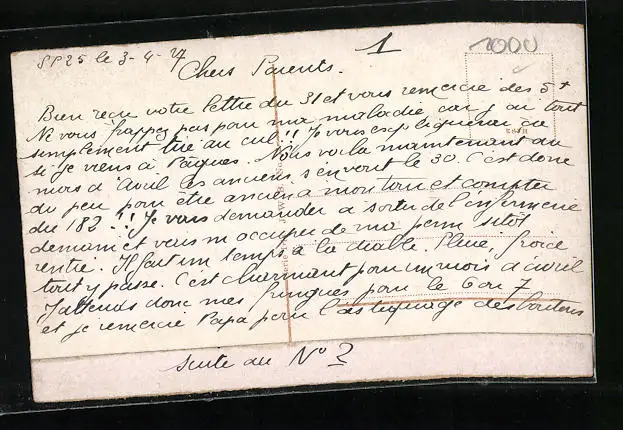 SP25 le 3-4-27
1
1000
Chers Parents.
Bien reçu votre lettre du 31 et vous remercie des 5 f
Ne vous frappez pas pour ma maladie car j'ai tout
simplement tiré au cul!! Je vous expliquerai ça
si je viens à Pâques. Nous voilà maintenant au
mois d'avril les anciens s'en vont le 30. C'est donc
du peu pour être ancien à mon tour et compter
du 182!! Je vais demander à sortir de l'infirmerie
demain et vais m'occuper de ma perm sitôt
rentré. Il fait un temps à la diable. Pluie, froid
tout y passe. C'est charmant pour un mois d'avril
J'attends donc mes fringues pour le 6 ou 7
et je remercie Papa pour l'astiquage des boutons
suite au N° 2